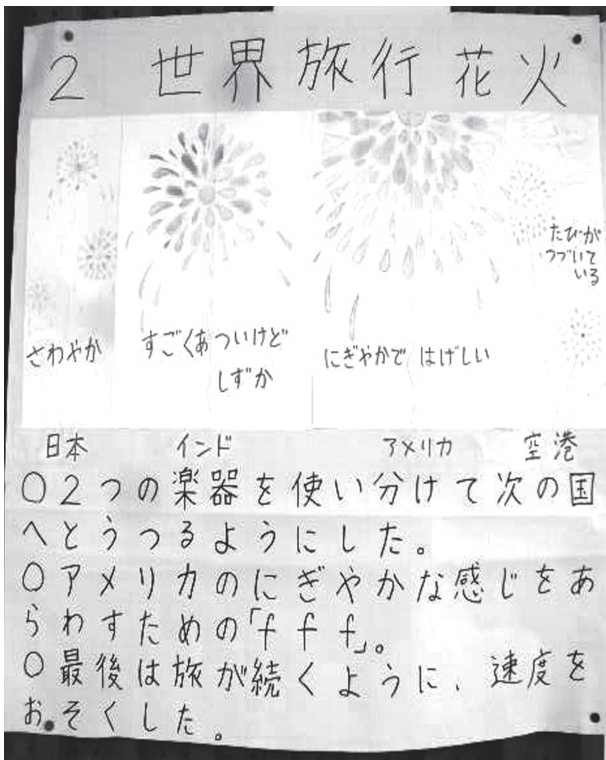 2 世界旅行花火
さわやか
すごくあついけど
しずか
にぎやかで はげしい
たびが
つづいて
いる
日本 インド アメリカ 空港
○2つの楽器を使い分けて次の国
へとうつるようにした。
○アメリカのにぎやかな感じをあ
らわすための「fff」。
○最後は旅が続くように、速度を
おそくした。